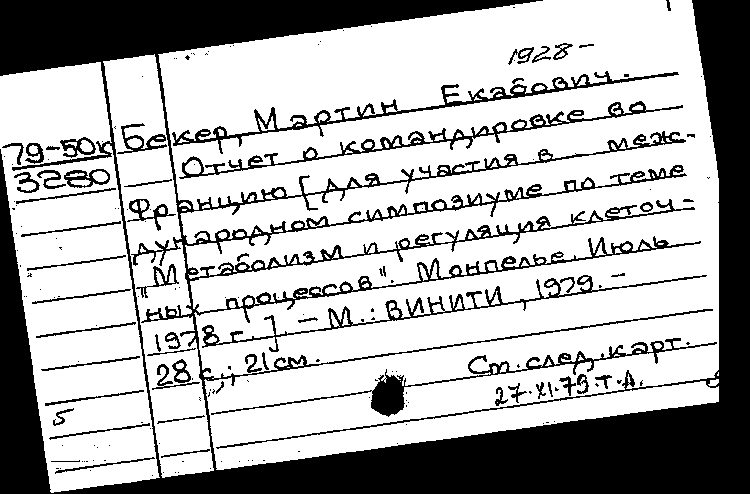 1928-
79-50к Бекер, Мартин Екабович.
3280 Отчет о командировке во
Францию [для участия в меж-
дународном симпозиуме по теме
"Метаболизм и регуляция клеточ-
ных процессов". Монпелье. Июль
1978 г.]. - М.: ВИНИТИ, 1979. -
28 с.; 21 см.
Ст. след. карт.
5 27.XI.79.Т.А.